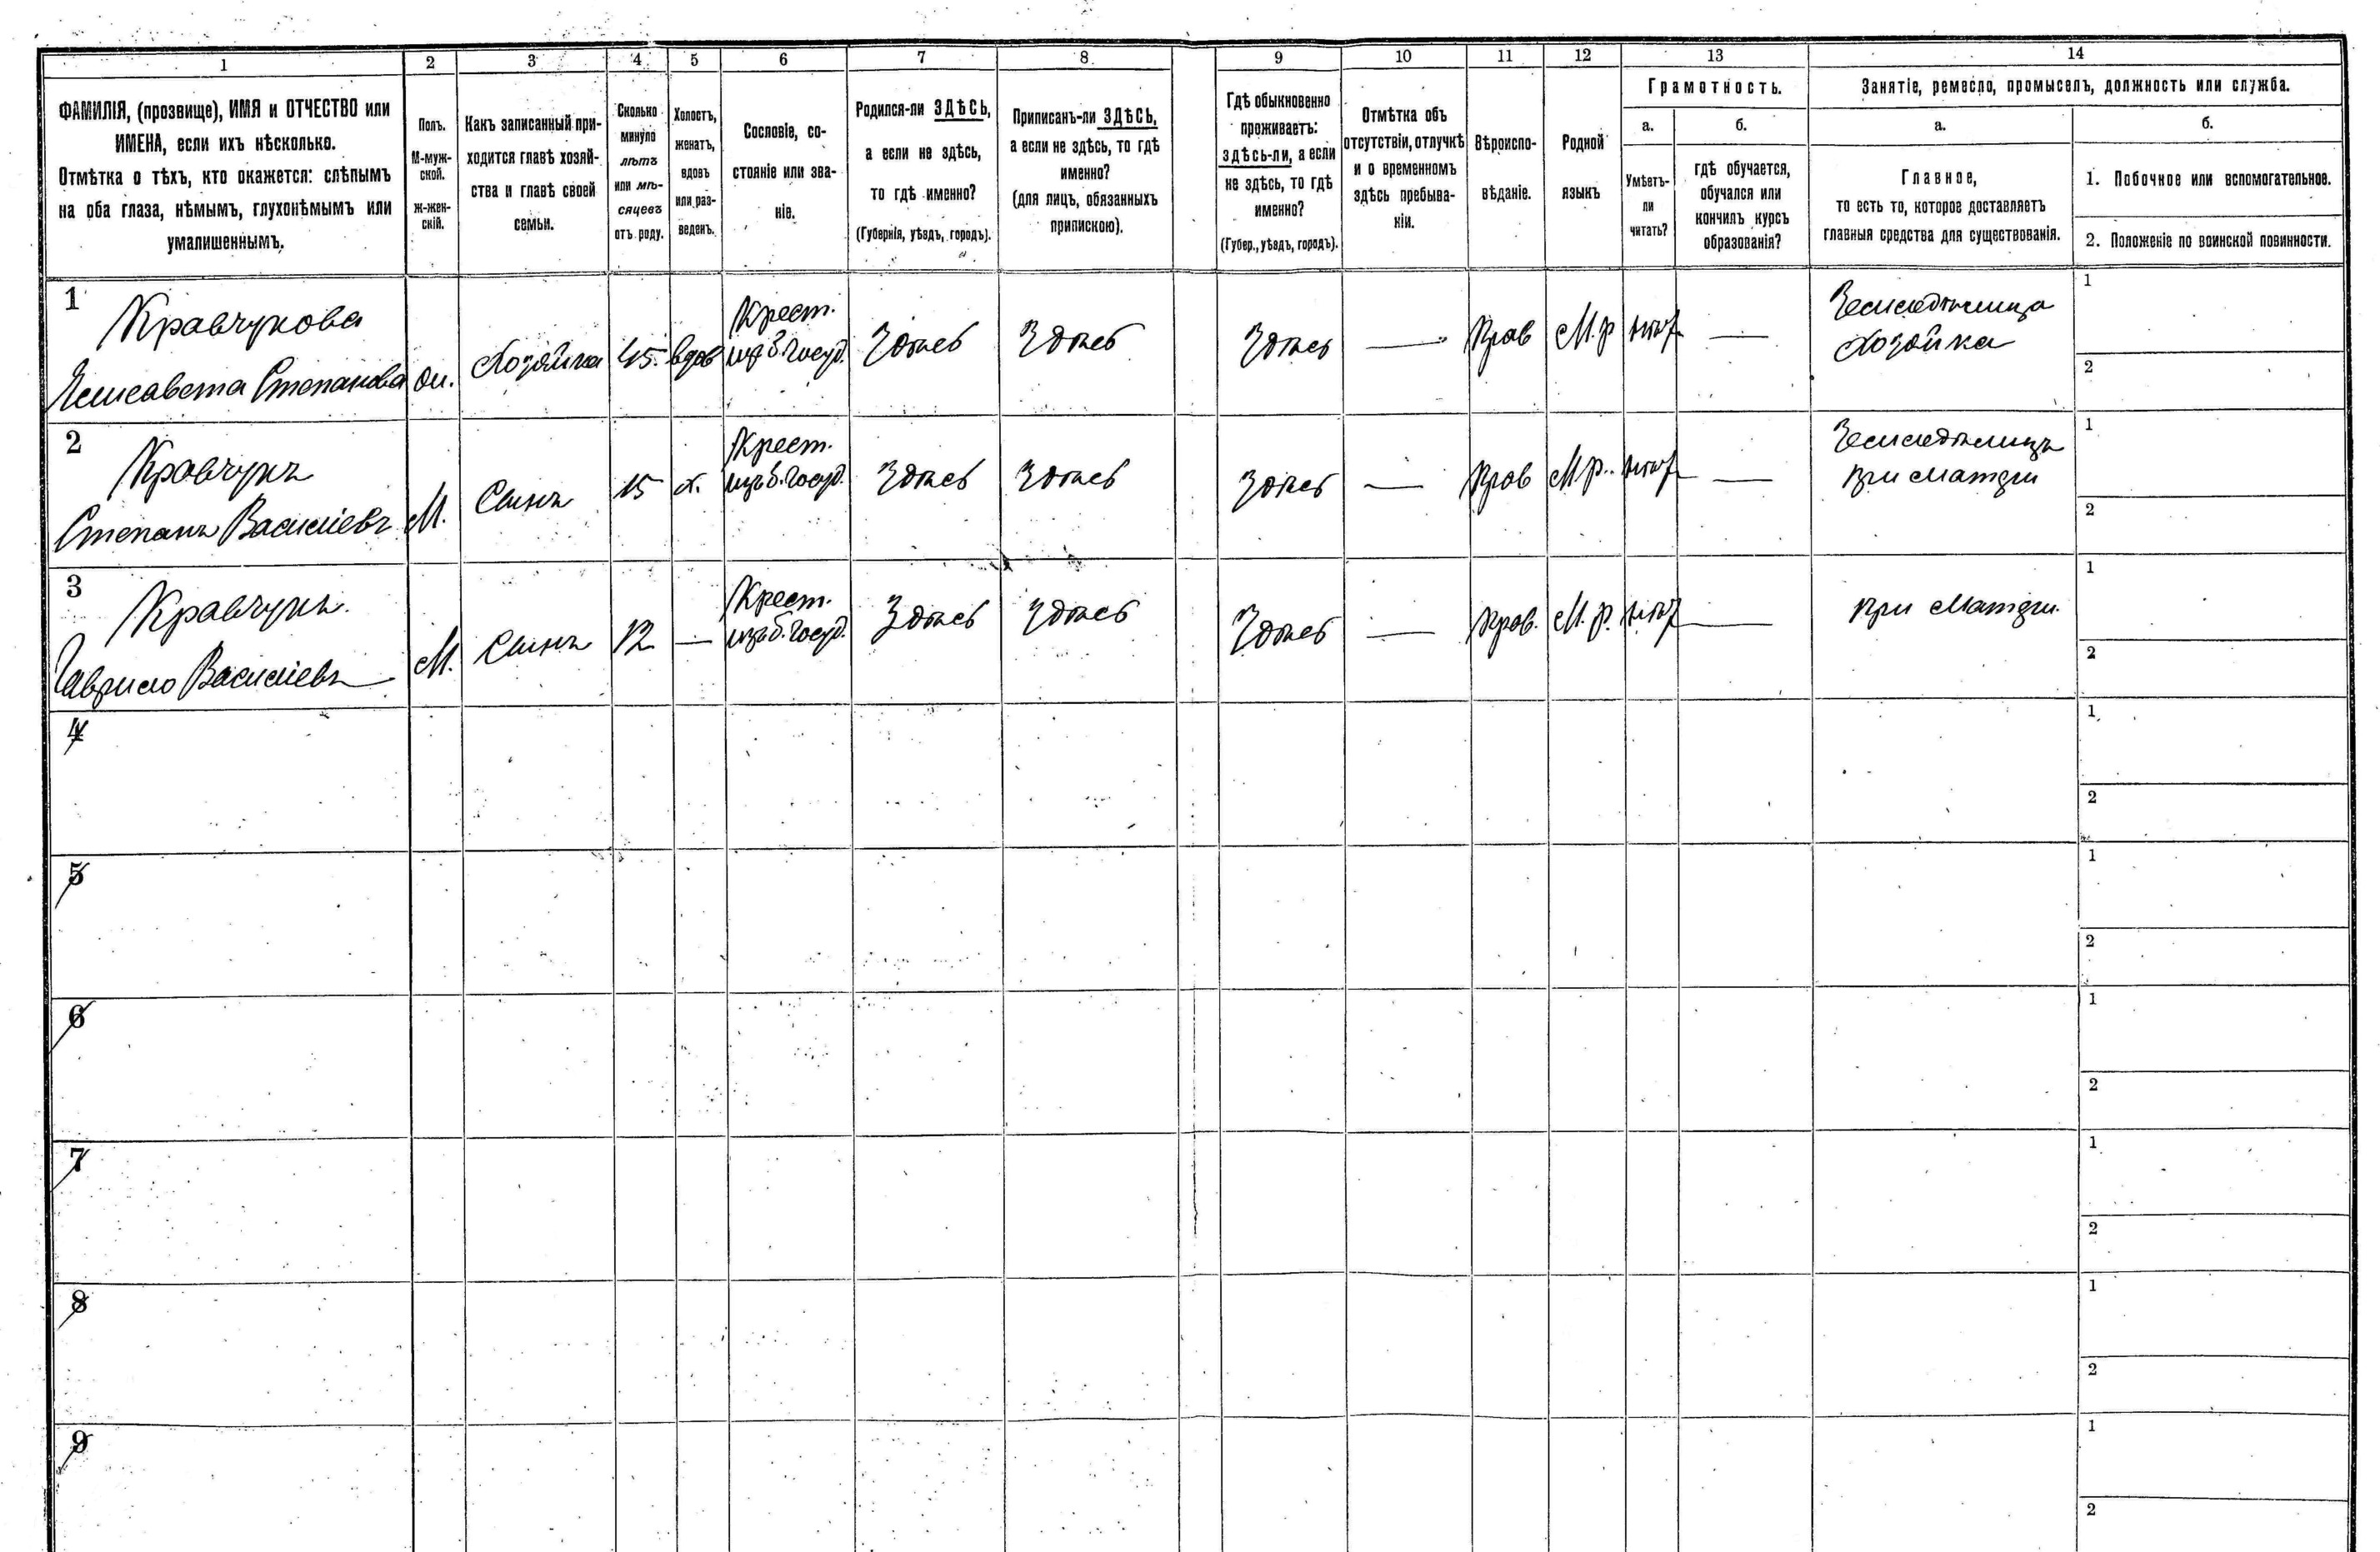 1 2 3 4 5 6 7 8 9 10 11 12 13 14
ФАМИЛІЯ, (прозвище), ИМЯ и ОТЧЕСТВО или
ИМЕНА, если ихъ нѣсколько.
Отмѣтка о тѣхъ, кто окажется: слѣпымъ
на оба глаза, нѣмымъ, глухонѣмымъ или
умалишеннымъ.
Полъ.
М-муж-
ской.
ж-жен-
скій.
Какъ записанный при-
ходится главѣ хозяй-
ства и главѣ своей
семьи.
Сколько
минуло
лѣтъ
или мѣ-
сяцевъ
отъ роду.
Холостъ,
женатъ,
вдовъ
или раз-
веденъ.
Сословіе, со-
стояніе или зва-
ніе.
Родился-ли ЗДѢСЬ,
а если не здѣсь,
то гдѣ именно?
(Губернія, уѣздъ, городъ).
Приписанъ-ли ЗДѢСЬ,
а если не здѣсь, то гдѣ
именно?
(для лицъ, обязанныхъ
припискою).
Гдѣ обыкновенно
проживаетъ:
здѣсь-ли, а если
не здѣсь, то гдѣ
именно?
(Губер., уѣздъ, городъ).
Отмѣтка объ
отсутствіи, отлучкѣ
и о временномъ
здѣсь пребыва-
ніи.
Вѣроиспо-
вѣданіе.
Родной
языкъ
Грамотность.
а.
Умѣетъ-
ли
читать?
б.
гдѣ обучается,
обучался или
кончилъ курсъ
образованія?
Занятіе, ремесло, промыселъ, должность или служба.
а.
Главное,
то есть то, которое доставляетъ
главныя средства для существованія.
б.
1. Побочное или вспомогательное.
2. Положеніе по воинской повинности.
1
Кравчукова
Елисавета Степанова
ж.
Хозяйка
45.
вдов
Крест.
из б. госуд.
Здѣсь
Здѣсь
Здѣсь
—
Прав
М. р
нѣт
—
Земледѣлица
Хозяйка
1
2
2
Кравчукъ
Степанъ Василіевъ
М.
Сынъ
15
х.
Крест.
изъ б. госуд.
Здѣсь
Здѣсь
Здѣсь
—
Прав
М р..
нѣт
—
Земледѣлицъ
при матери
1
2
3
Кравчукъ.
Гаврило Василіевъ
М.
Сынъ
12
—
Крест.
изъ б. госуд.
Здѣсь
Здѣсь
Здѣсь
—
Прав.
М. р.
нѣт
—
при матери.
1
2
4
1
2
5
1
2
6
1
2
7
1
2
8
1
2
9
1
2